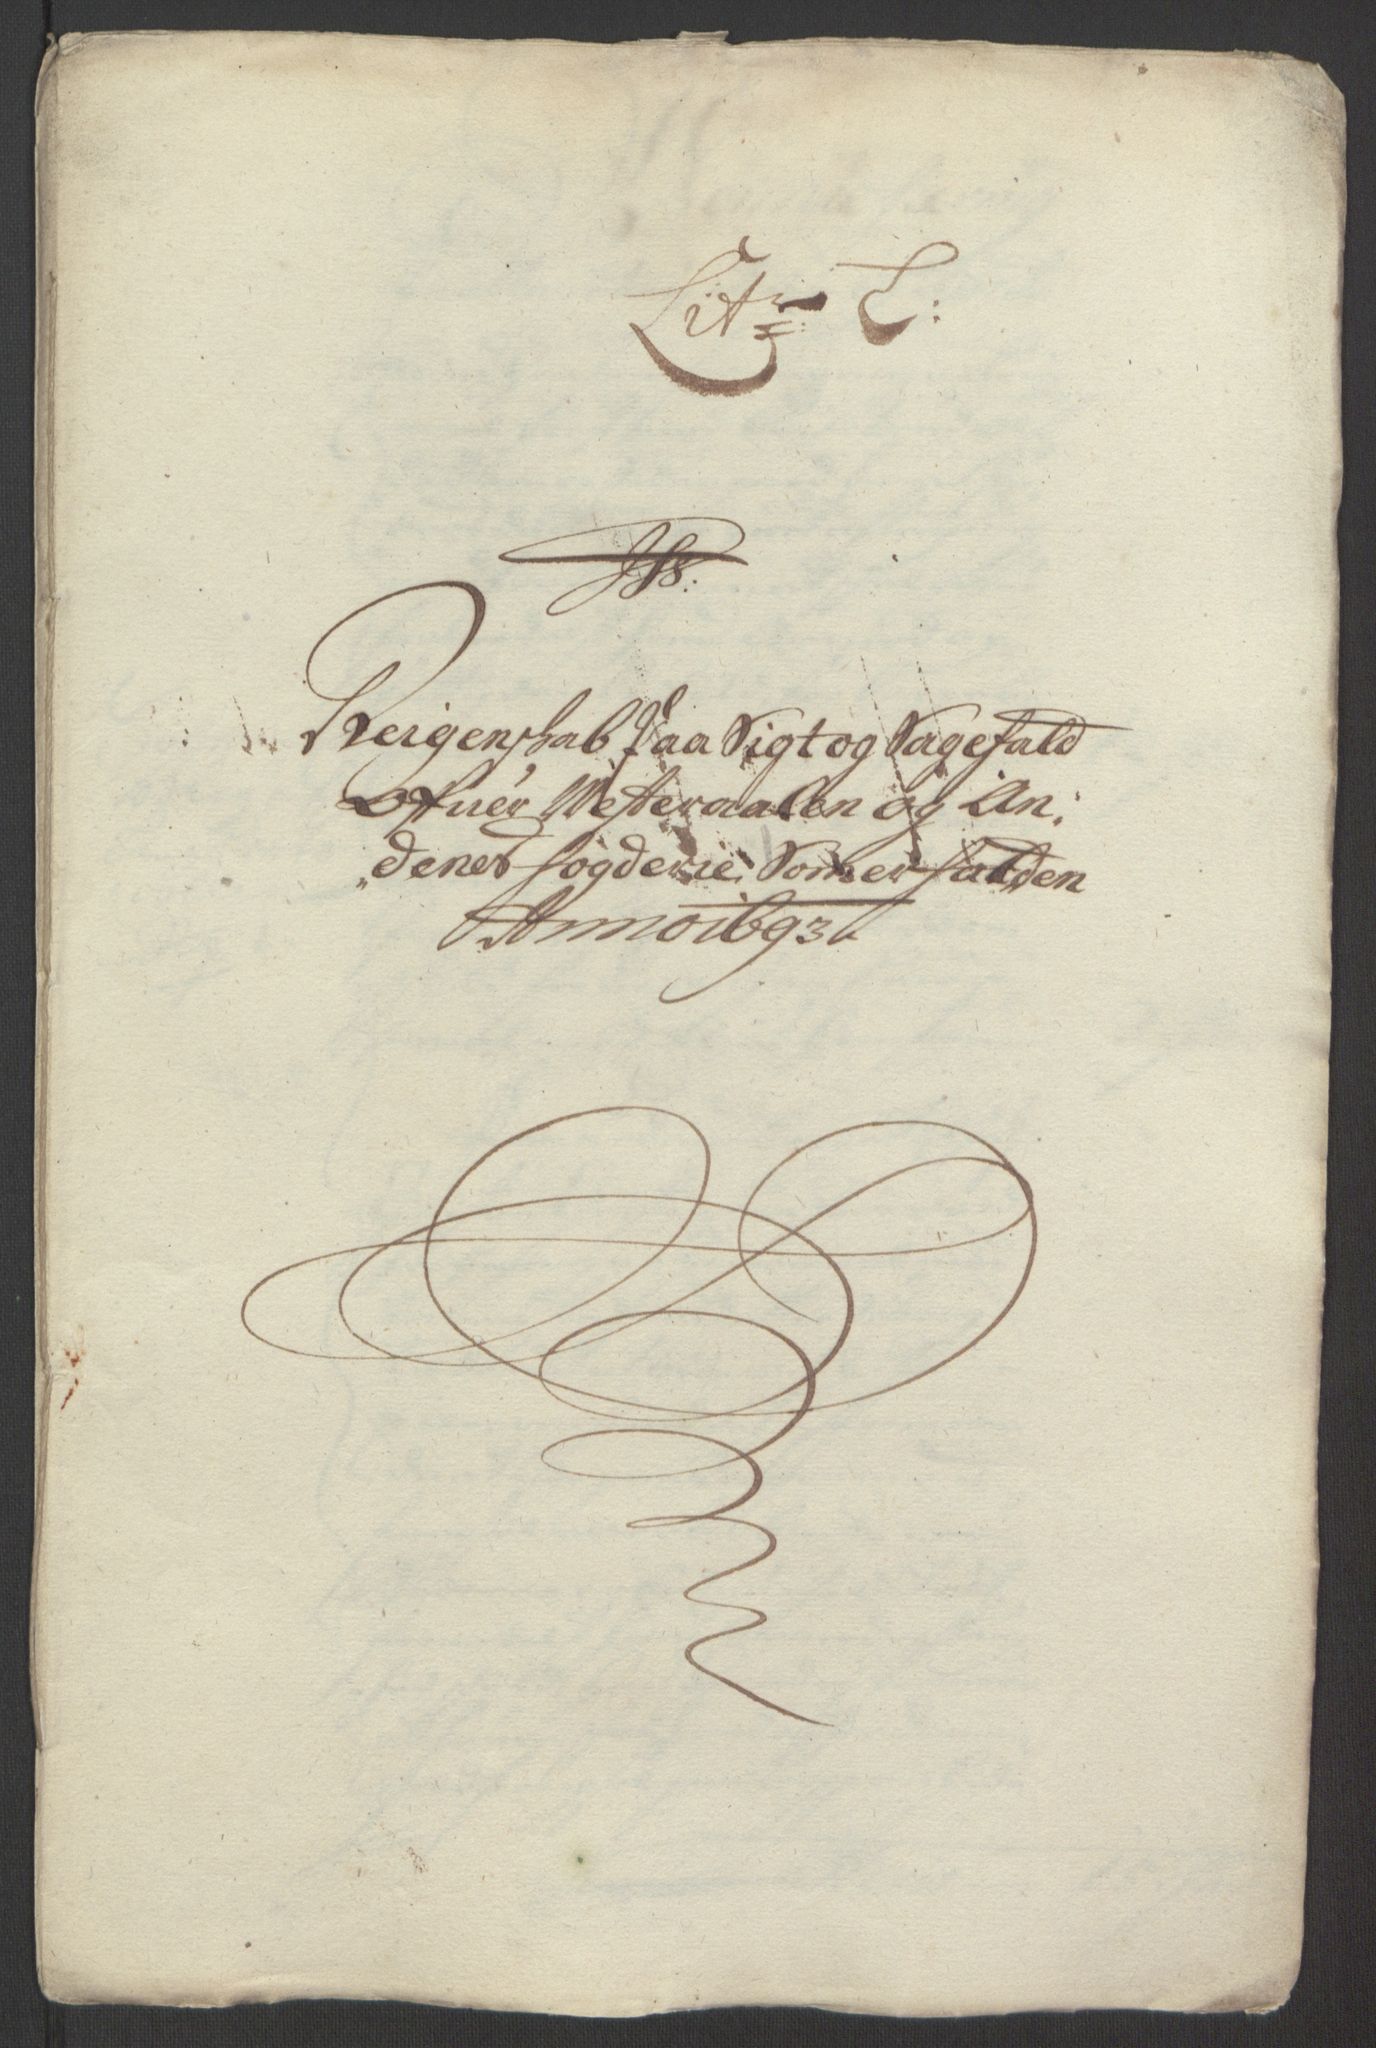 Litr: C:
Reigenskab Paa Sigt og Sagefald
offuer Westeraalen og An:
denes fogderie, Som er falden
Anno 1693